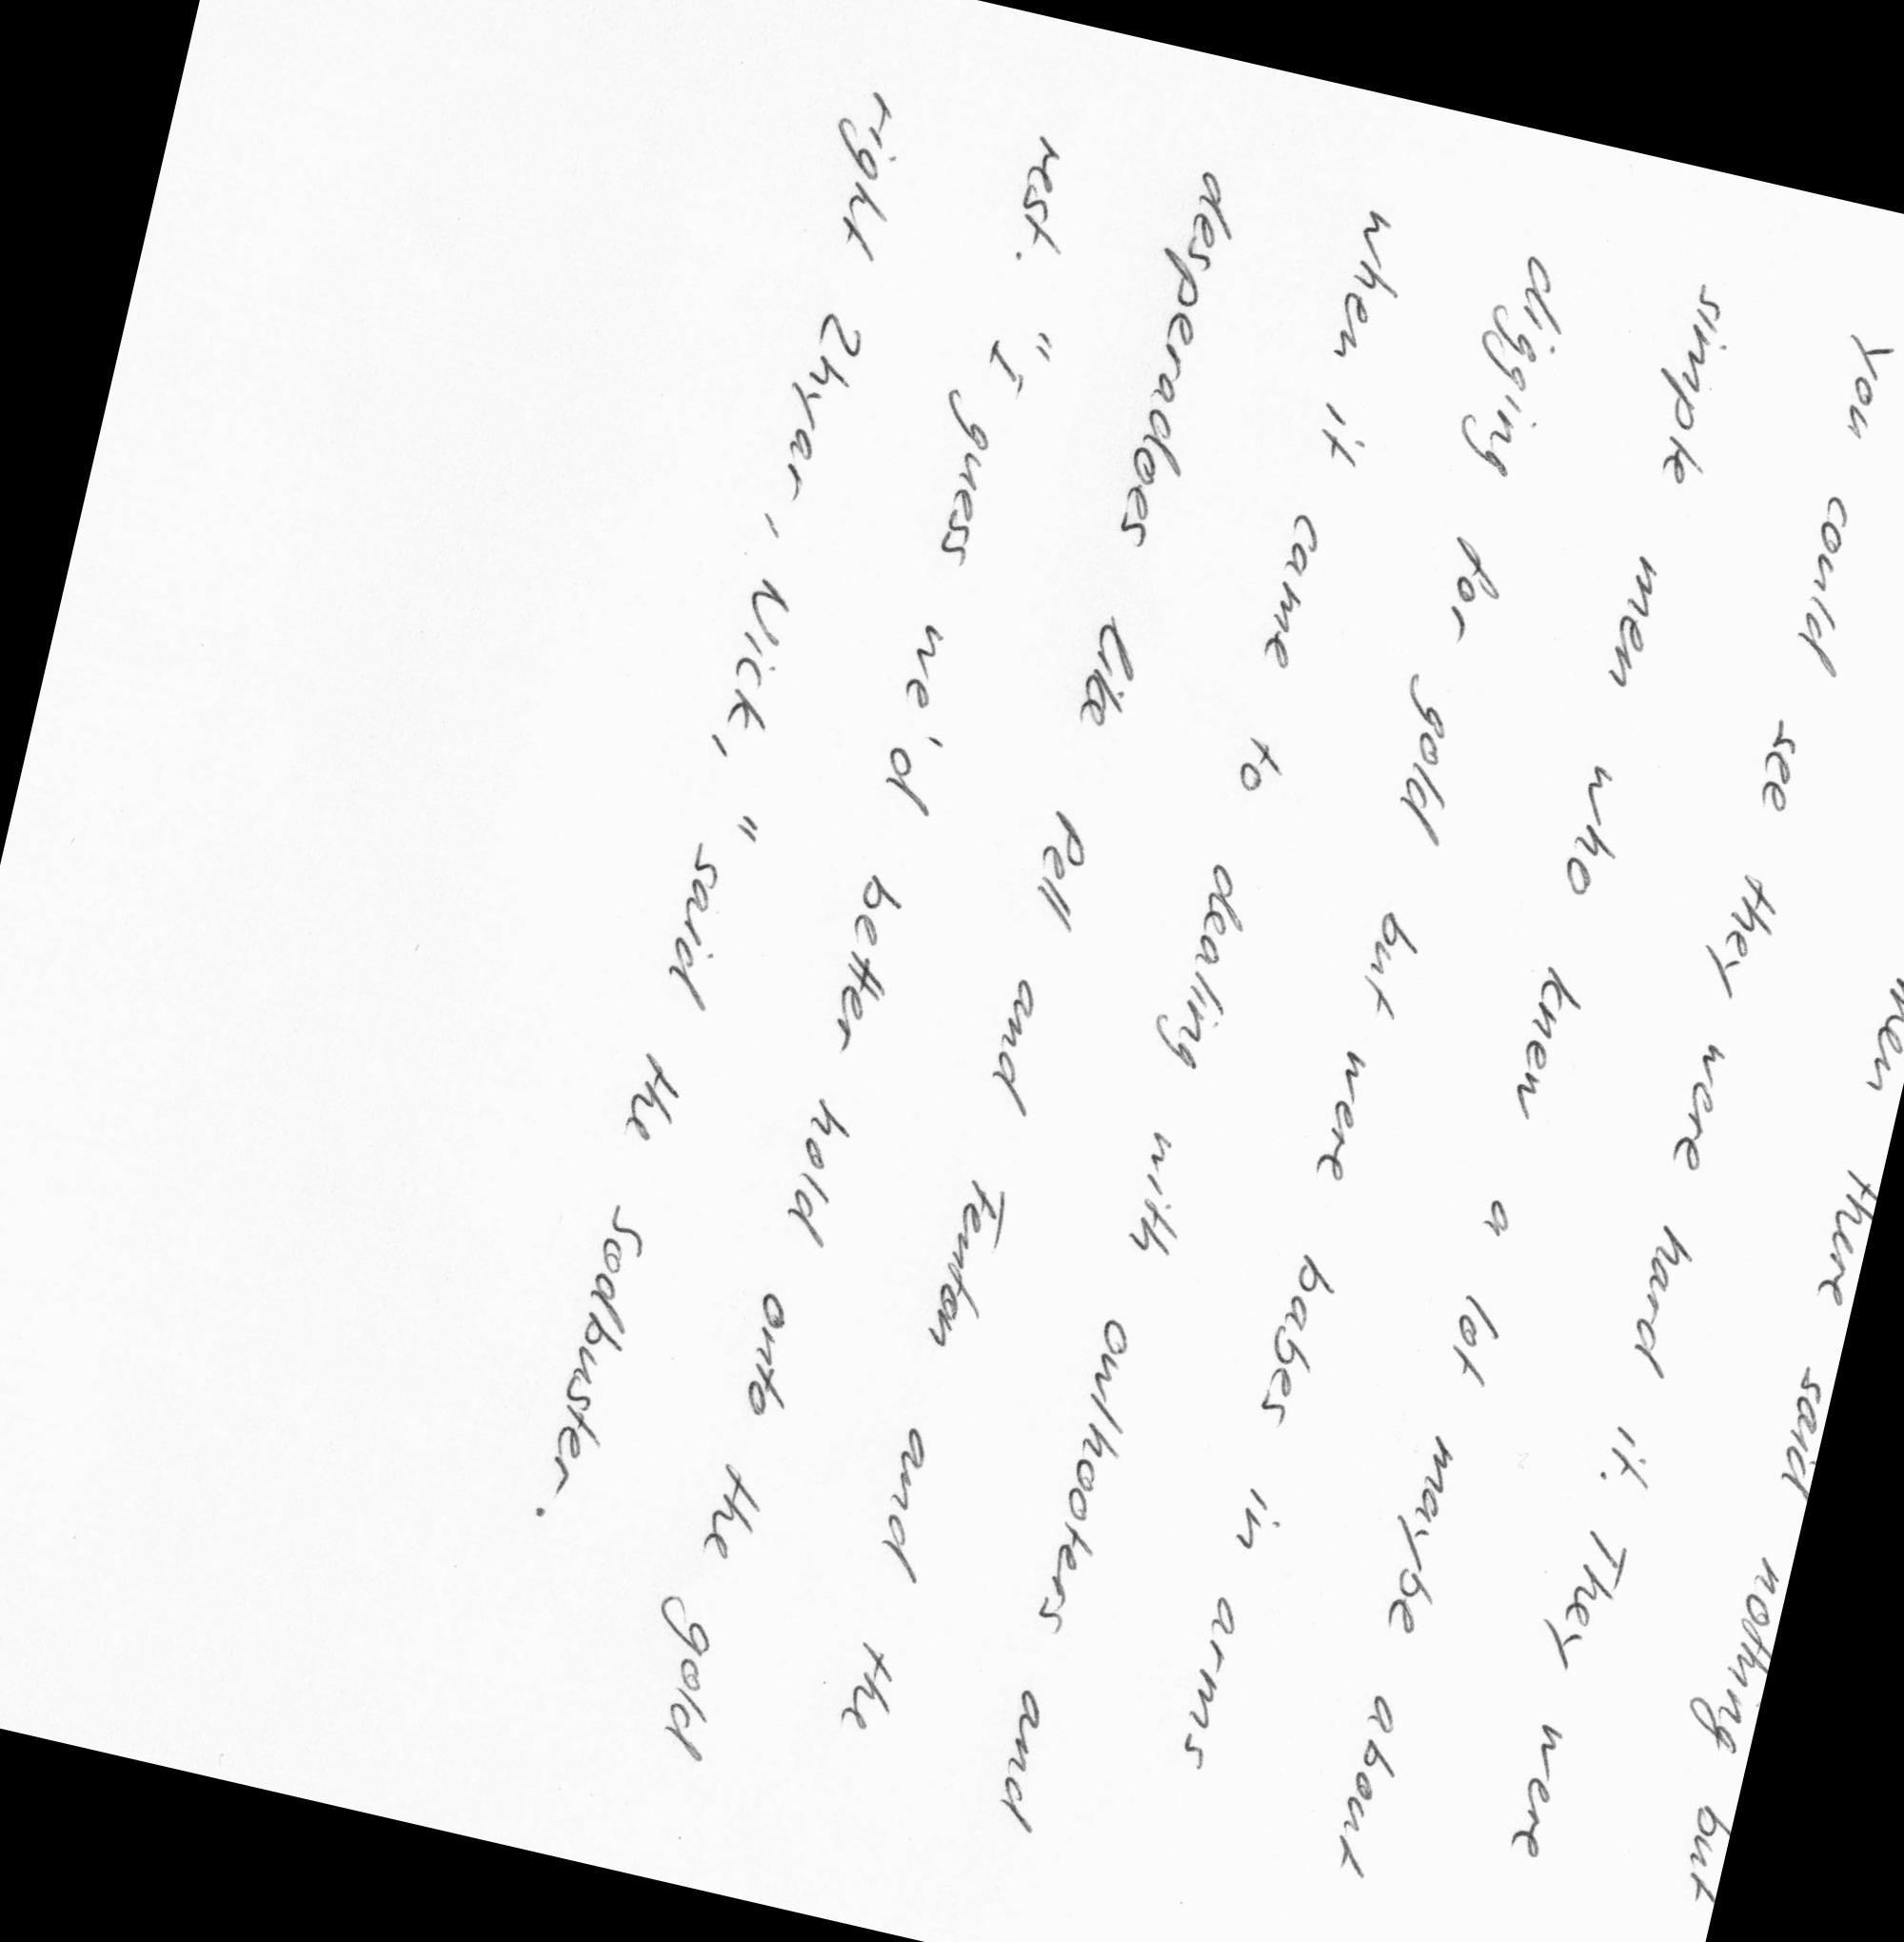 men there said nothing but
You could see they were hard it. They were
simple men who knew a lot maybe about
digging for gold but were babes in arms
when it came to dealing with owlhooters and
desperadoes like Pell and Fenton and the
rest. "I guess we'd better hold onto the gold
right 2hyar, Nick," said the Sodbuster.